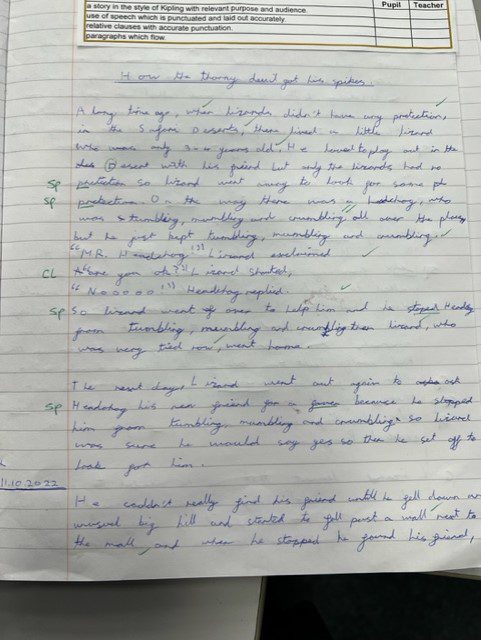 a story in the style of Kipling with relevant purpose and audience.
use of speech which is punctuated and laid out accurately.
relative clauses with accurate punctuation.
paragraphs which flow.
Pupil Teacher
How the thorny devil got his spikes.
A long time ago, when lizards didn't have any protection,
in the Deserts, there lived a little lizard
who was only 3-4 years old. He loved to play out in the
Desert with his friend but only the lizards had no
sp protection so lizard went away to look for some
sp protection. On the way there was a hedgehog, who
was tumbling, mumbling and crumbling, all over the place
but he just kept tumbling, mumbling and crumbling.
"MR. Headghog!" Lizard exclaimed
CL Are you ok?" Lizard shouted,
"Nooooo!" Headhog replied.
sp So lizard went over to help him and he stoped
from tumbling, mumbling and crumbling then lizard, who
was very tied now, went home.
The next day, Lizard went out again to ask
sp Headohog his new friend for a because he stopped
him from tumbling, mumbling and crumbling so lizard
was sure he would say yes so then he set off to
look for him.
11.10.2022
He couldn't really find his friend untill he fell down an
unusual big hill and started to fall past a wall next to
the mall, and when he stopped he found his friend,